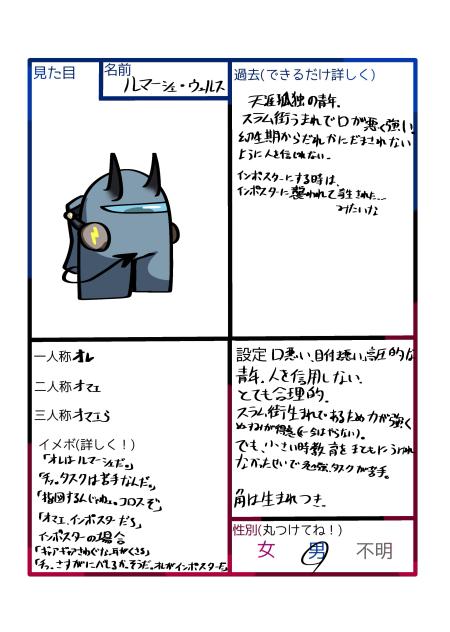 見た目
名前
ルマーシェ・ウェルス
過去(できるだけ詳しく)
天涯孤独の青年.
スラム街うまれで口が悪く強い.
幼少期からだれかにだまされない
ように人を信じない.
インポスターにする時は、
インポスターに襲われて寄生された...
みたいな
一人称 オレ
二人称 オマエ
三人称 オマエら
イメボ(詳しく!)
「オレはルマーシェだ。」
「チッ。タスクは苦手なんだ。」
「指図するんじゃねぇ。コロスぞ」
「オマエ、インポスターだろ」
インポスターの場合
「ギャアギャアさわぐな。耳がくさる」
「チッ、さすがにバレるか。そうだ。オレがインポスターだ。
設定 口悪い、目付き悪い、高圧的な
青年. 人を信用しない.
とても合理的.
スラム街生まれであるため力が強く
ぬすみが得意(今はやらない).
でも、小さい時教育をまともにうけれ
なかったせいで勉強、タスクが苦手.
角は生まれつき.
性別(丸つけてね!)
女 男 不明